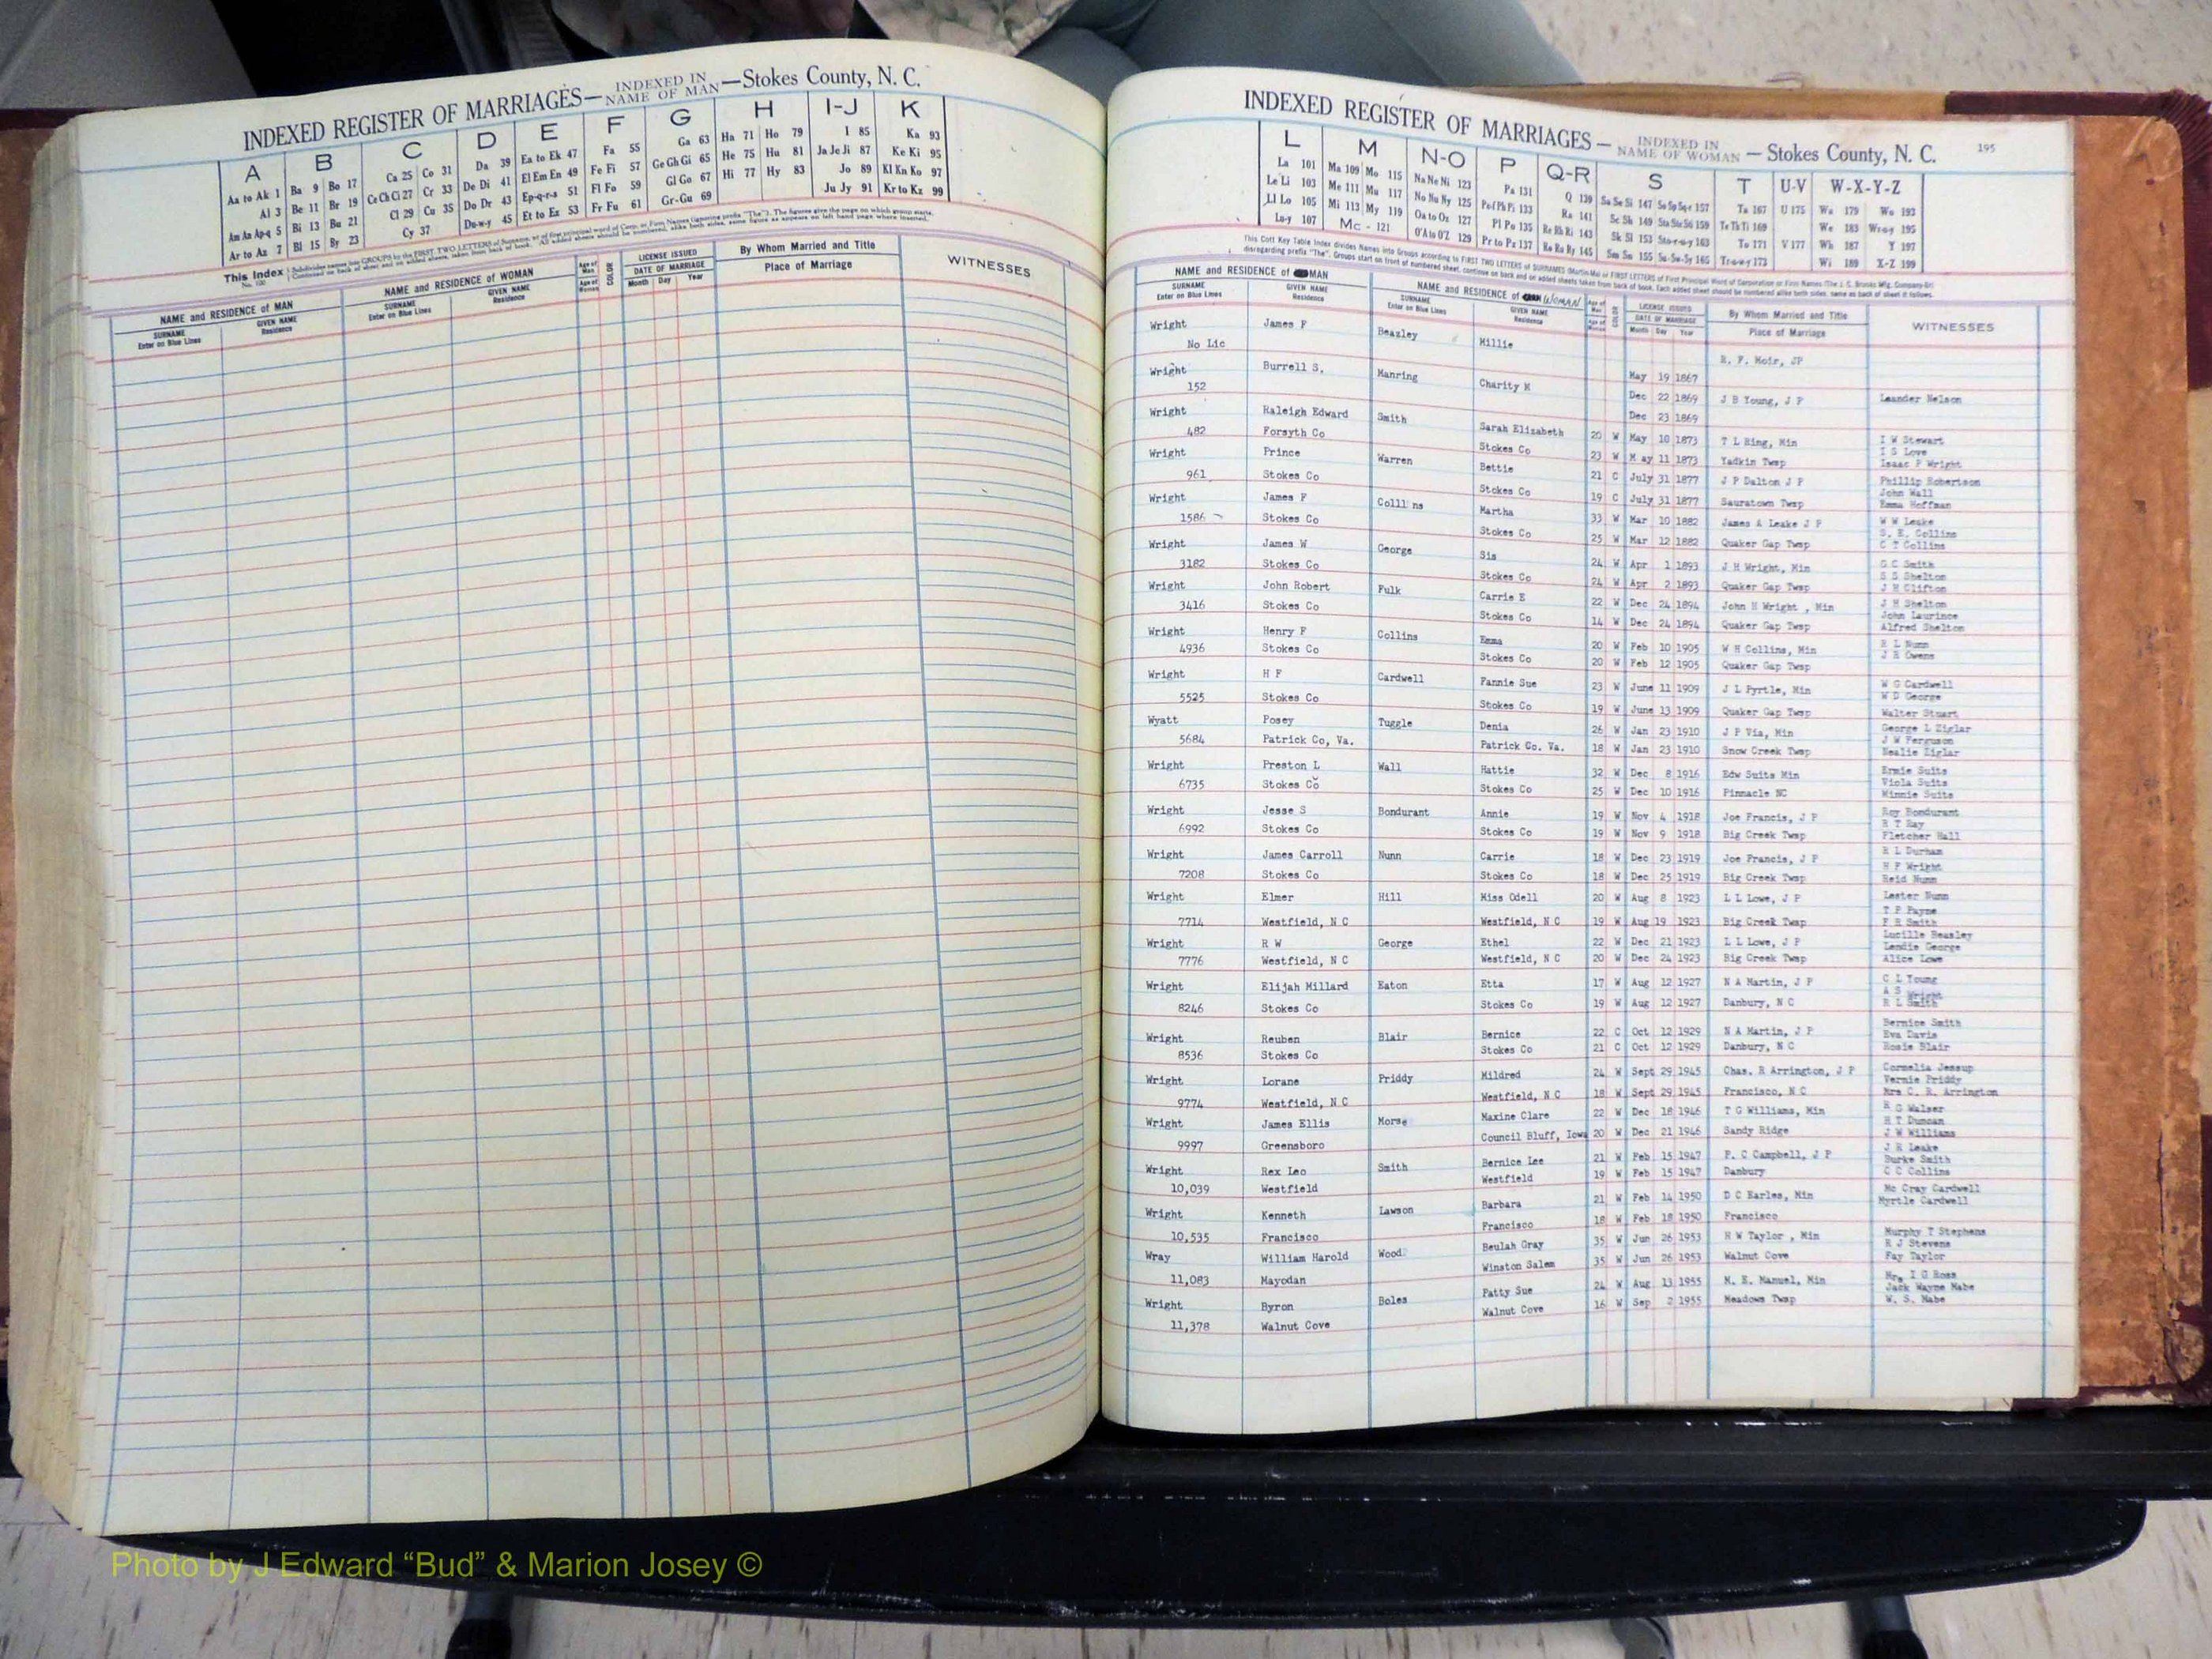 INDEXED REGISTER OF MARRIAGES— INDEXED IN NAME OF MAN —Stokes County, N. C.
A B C D E F G H I-J K
Aa to Ak 1 Ba 9 Bo 17 Ca 25 Co 31 Da 39 Ea to Ek 47 Fa 55 Ga 63 Ha 71 Ho 79 I 85 Ka 93
Al 3 Be 11 Br 19 Ce Ch Ci 27 Cr 33 De Di 41 El Em En 49 Fe Fi 57 Ge Gh Gi 65 He 75 Hu 81 Ja Je Ji 87 Ke Ki 95
Am An Ap-q 5 Bi 13 Bu 21 Cl 29 Cu 35 Do Dr 43 Ep-q-r-s 51 Fl Fo 59 Gl Go 67 Hi 77 Hy 83 Jo 89 Kl Kn Ko 97
Ar to Az 7 Bl 15 By 23 Cy 37 Du-w-y 45 Et to Ez 53 Fr Fu 61 Gr-Gu 69 Ju Jy 91 Kr to Kz 99
This Index
NAME and RESIDENCE of MAN NAME and RESIDENCE of WOMAN Age of Man Age of Woman COLOR LICENSE ISSUED DATE OF MARRIAGE Month Day Year By Whom Married and Title Place of Marriage WITNESSES
SURNAME Enter on Blue Lines GIVEN NAME Residence SURNAME Enter on Blue Lines GIVEN NAME Residence
INDEXED REGISTER OF MARRIAGES — INDEXED IN NAME OF WOMAN — Stokes County, N. C. 195
L M N-O P Q-R S T U-V W-X-Y-Z
La 101 Ma 109 Mo 115 Na Ne Ni 123 Pa 131 Q 139 Sa Se Si 147 So Sp Sq-r 157 Ta 167 U 175 Wa 179 Wo 193
Le Li 103 Me 111 Mu 117 No Nu Ny 125 Pe Ph Pi 133 Ra 141 Sc Sh 149 159 Te Th Ti 169 We 183 Wr-o-y 195
Ll Lo 105 Mi 113 My 119 Oa to Oz 127 Pl Po 135 Re Rh Ri 143 Sk Sl 153 Sto-r-u-y 163 To 171 V 177 Wh 187 Y 197
Lu-y 107 Mc - 121 O'A to O'Z 129 Pr to Pz 137 Ro Ru Ry 145 Sm Sn 155 Su-Sw-Sy 165 Tr-u-w-y 173 Wi 189 X-Z 199
NAME and RESIDENCE of MAN NAME and RESIDENCE of WOMAN Age of Man COLOR LICENSE ISSUED DATE OF MARRIAGE Month Day Year By Whom Married and Title Place of Marriage WITNESSES
SURNAME Enter on Blue Lines GIVEN NAME Residence SURNAME Enter on Blue Lines GIVEN NAME Residence
Wright James F Beazley Millie R. F. Moir, JP
No Lic May 19 1867
Wright Burrell S. Manring Charity M Dec 22 1869 J B Young, J P Leander Nelson
152 Dec 23 1869
Wright Raleigh Edward Smith Sarah Elizabeth 20 W May 10 1873 T L Ring, Min I W Stewart
I S Love
482 Forsyth Co Stokes Co 23 W M ay 11 1873 Yadkin Twsp Isaac P Wright
Wright Prince Warren Bettie 21 C July 31 1877 J P Dalton J P Phillip Robertson
John Wall
961 Stokes Co Stokes Co 19 C July 31 1877 Sauratown Twsp Emma Hoffman
Wright James F Collins Martha 33 W Mar 10 1882 James A Leake J P W W Leake
S. E. Collins
1586 Stokes Co Stokes Co 25 W Mar 12 1882 Quaker Gap Twsp C T Collins
Wright James W George Sis 24 W Apr 1 1893 J H Wright, Min G C Smith
S S Shelton
3182 Stokes Co Stokes Co 24 W Apr 2 1893 Quaker Gap Twsp J H Clifton
Wright John Robert Fulk Carrie E 22 W Dec 24 1894 John H Wright , Min J H Shelton
John Laurince
3416 Stokes Co Stokes Co 14 W Dec 24 1894 Quaker Gap Twsp Alfred Shelton
Wright Henry F Collins Emma 20 W Feb 10 1905 W H Collins, Min R L Nunn
4936 Stokes Co Stokes Co 20 W Feb 12 1905 Quaker Gap Twsp J R Owens
Wright H F Cardwell Fannie Sue 23 W June 11 1909 J L Pyrtle, Min W G Cardwell
W D George
5525 Stokes Co Stokes Co 19 W June 13 1909 Quaker Gap Twsp Walter Stuart
Wyatt Posey Tuggle Denia 26 W Jan 23 1910 J P Via, Min George L Ziglar
J W Ferguson
5684 Patrick Co, Va. Patrick Co. Va. 18 W Jan 23 1910 Snow Creek Twsp Nealie Ziglar
Wright Preston L Wall Hattie 32 W Dec 8 1916 Edw Suits Min Ermie Suits
Viola Suits
6735 Stokes Co Stokes Co 25 W Dec 10 1916 Pinnacle NC Minnie Suits
Wright Jesse S Bondurant Annie 19 W Nov 4 1918 Joe Francis, J P Roy Bondurant
R T Ray
6992 Stokes Co Stokes Co 19 W Nov 9 1918 Big Creek Twsp Fletcher Hall
Wright James Carroll Nunn Carrie 18 W Dec 23 1919 Joe Francis, J P R L Durham
H F Wright
7208 Stokes Co Stokes Co 18 W Dec 25 1919 Big Creek Twsp Reid Nunn
Wright Elmer Hill Miss Odell 20 W Aug 8 1923 L L Lowe, J P Lester Nunn
T P Payne
7714 Westfield, N C Westfield, N C 19 W Aug 19 1923 Big Creek Twsp F R Smith
Wright R W George Ethel 22 W Dec 21 1923 L L Lowe, J P Lucille Beasley
Lendie George
7776 Westfield, N C Westfield, N C 20 W Dec 24 1923 Big Creek Twsp Alice Lowe
Wright Elijah Millard Eaton Etta 17 W Aug 12 1927 N A Martin, J P C L Young
A S Wright
8246 Stokes Co Stokes Co 19 W Aug 12 1927 Danbury, N C R L Smith
Wright Reuben Blair Bernice 22 C Oct 12 1929 N A Martin, J P Bernice Smith
Eva Davis
8536 Stokes Co Stokes Co 21 C Oct 12 1929 Danbury, N C Rosie Blair
Wright Lorane Priddy Mildred 24 W Sept 29 1945 Chas. R Arrington, J P Cornelia Jessup
Vernie Priddy
9774 Westfield, N C Westfield, N C 18 W Sept 29 1945 Francisco, N C Mrs C. R. Arrington
Wright James Ellis Morse Maxine Clare 22 W Dec 18 1946 T G Williams, Min R G Walser
H T Duncan
9997 Greensboro Council Bluff, Iowa 20 W Dec 21 1946 Sandy Ridge J W Williams
Wright Rex Leo Smith Bernice Lee 21 W Feb 15 1947 F. C Campbell, J P J R Leake
Burke Smith
10,039 Westfield Westfield 19 W Feb 15 1947 Danbury C C Collins
Wright Kenneth Lawson Barbara 21 W Feb 14 1950 D C Earles, Min Mc Cray Cardwell
Myrtle Cardwell
10,535 Francisco Francisco 18 W Feb 18 1950 Francisco
Wray William Harold Wood Beulah Gray 35 W Jun 26 1953 H W Taylor , Min Murphy T Stephens
R J Stevens
11,083 Mayodan Winston Salem 35 W Jun 26 1953 Walnut Cove Fay Taylor
Wright Byron Boles Patty Sue 24 W Aug 13 1955 M. E. Manuel, Min Mrs I G Ross
Jack Wayne Mabe
11,378 Walnut Cove Walnut Cove 16 W Sep 2 1955 Meadows Twsp W. S. Mabe
Photo by J Edward “Bud” & Marion Josey ©